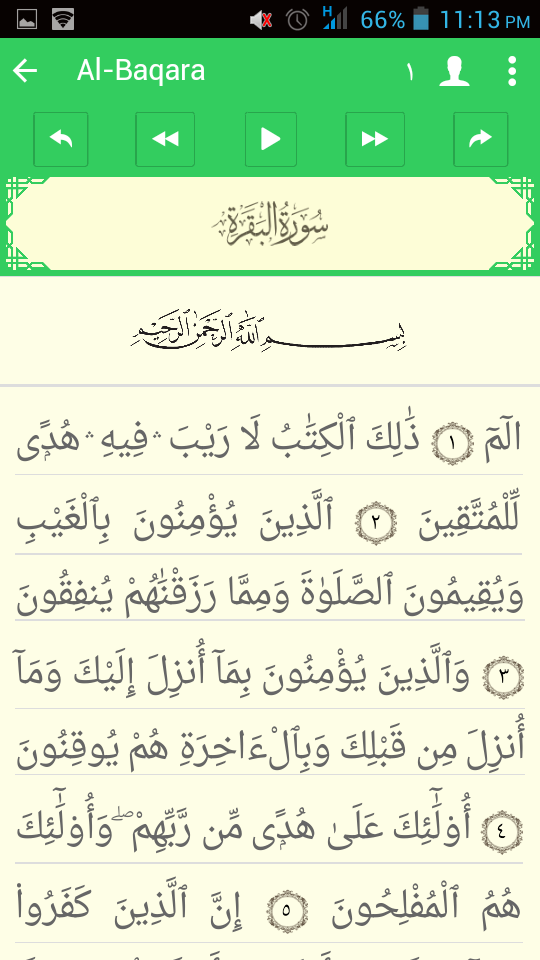 H 66% 11:13 PM
Al-Baqara ١
سُورَةُ الْبَقَرَةِ
بِسْمِ اللَّهِ الرَّحْمَٰنِ الرَّحِيمِ
الٓمٓ ١ ذَٰلِكَ ٱلْكِتَٰبُ لَا رَيْبَ ۛ فِيهِ ۛ هُدًۭى
لِّلْمُتَّقِينَ ٢ ٱلَّذِينَ يُؤْمِنُونَ بِٱلْغَيْبِ
وَيُقِيمُونَ ٱلصَّلَوٰةَ وَمِمَّا رَزَقْنَٰهُمْ يُنفِقُونَ
٣ وَٱلَّذِينَ يُؤْمِنُونَ بِمَآ أُنزِلَ إِلَيْكَ وَمَآ
أُنزِلَ مِن قَبْلِكَ وَبِٱلْءَاخِرَةِ هُمْ يُوقِنُونَ
٤ أُو۟لَٰٓئِكَ عَلَىٰ هُدًۭى مِّن رَّبِّهِمْ ۖ وَأُو۟لَٰٓئِكَ
هُمُ ٱلْمُفْلِحُونَ ٥ إِنَّ ٱلَّذِينَ كَفَرُوا۟